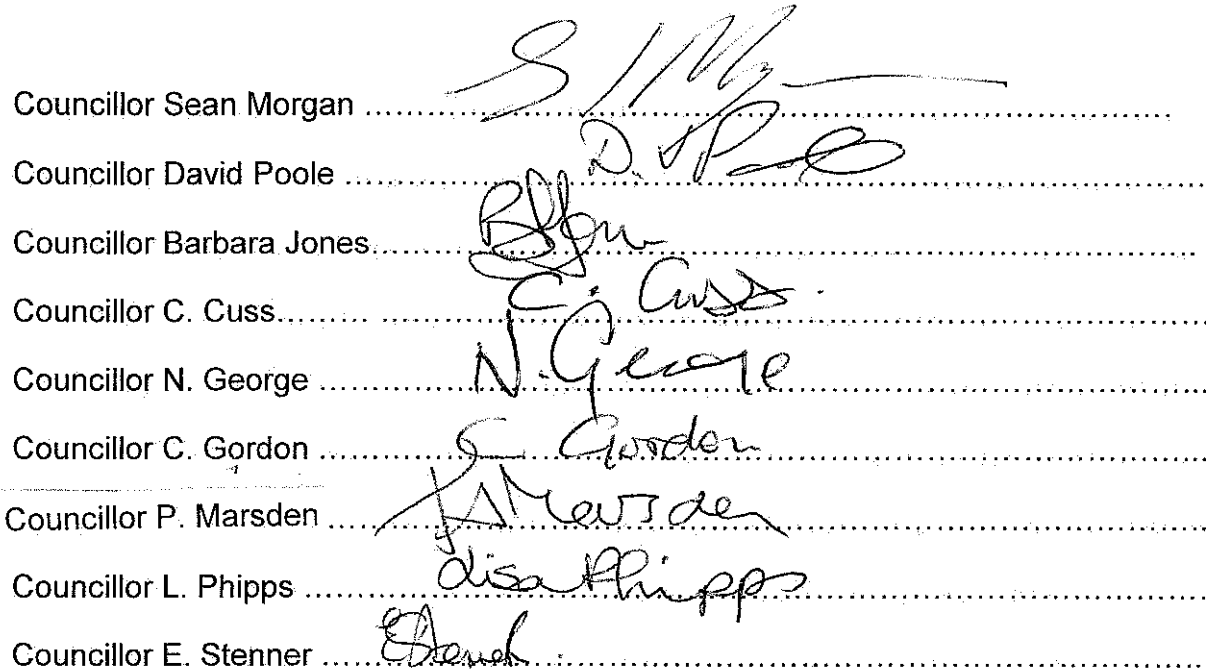 Councillor Sean Morgan ..........
Councillor David Poole .......... D.
Councillor Barbara Jones ..........
Councillor C. Cuss .......... C. Cuss.
Councillor N. George .......... N. George
Councillor C. Gordon .......... C Gordon
Councillor P. Marsden .......... Marsden
Councillor L. Phipps .......... Lisa Phipps
Councillor E. Stenner .......... EStenner